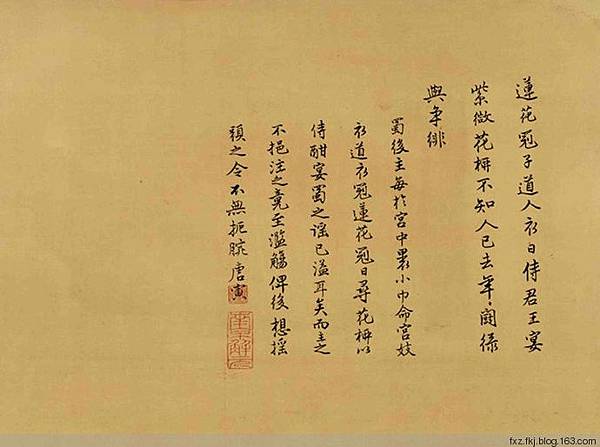 蓮花冠子道人衣日侍君王宴
紫微花柳不知人已去年〻鬪緑
與爭緋
蜀後主每於宮中裹小巾命宮妓
衣道衣冠蓮花冠日尋花柳以
侍酣宴蜀之謠已溢耳矣而主之
不挹注之竟至濫觴俾後想搖
頭之令不無扼腕唐寅
fxz.fkj.blog.163.com